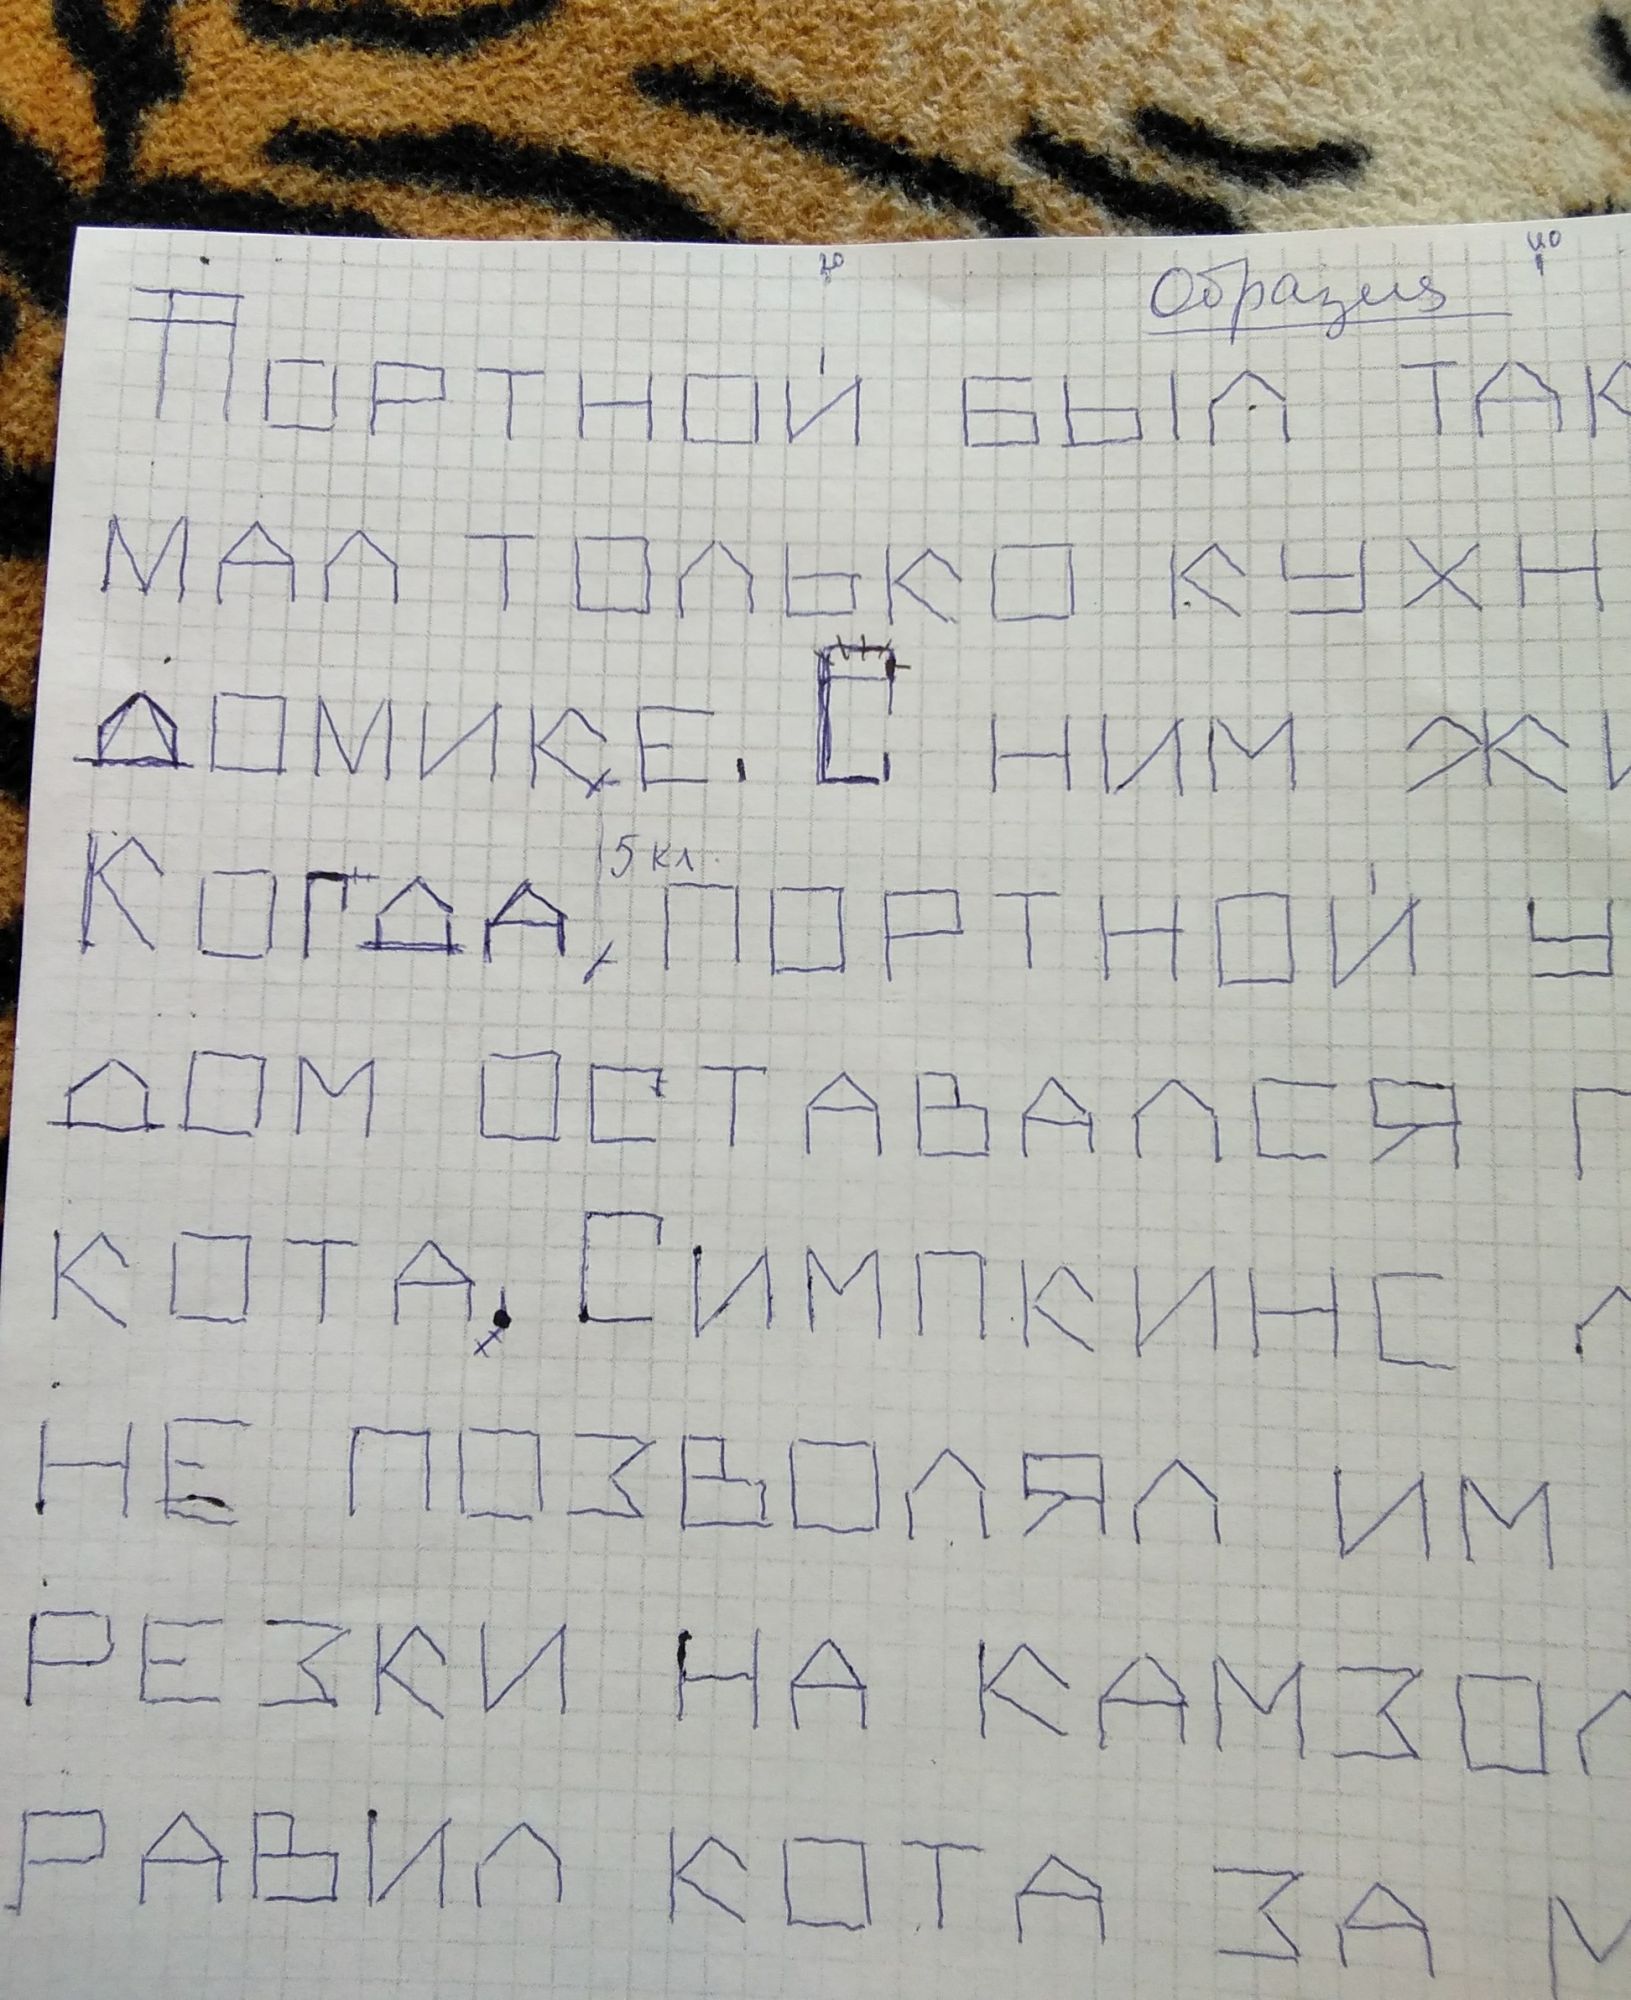 20 Образец 40
Портной был так
мал только кухн
домике. С ним жи
5 кл.
Когда, портной у
дом оставался п
кота. Симпкинс л
не позволял им
резки на камзол
равил кота за м